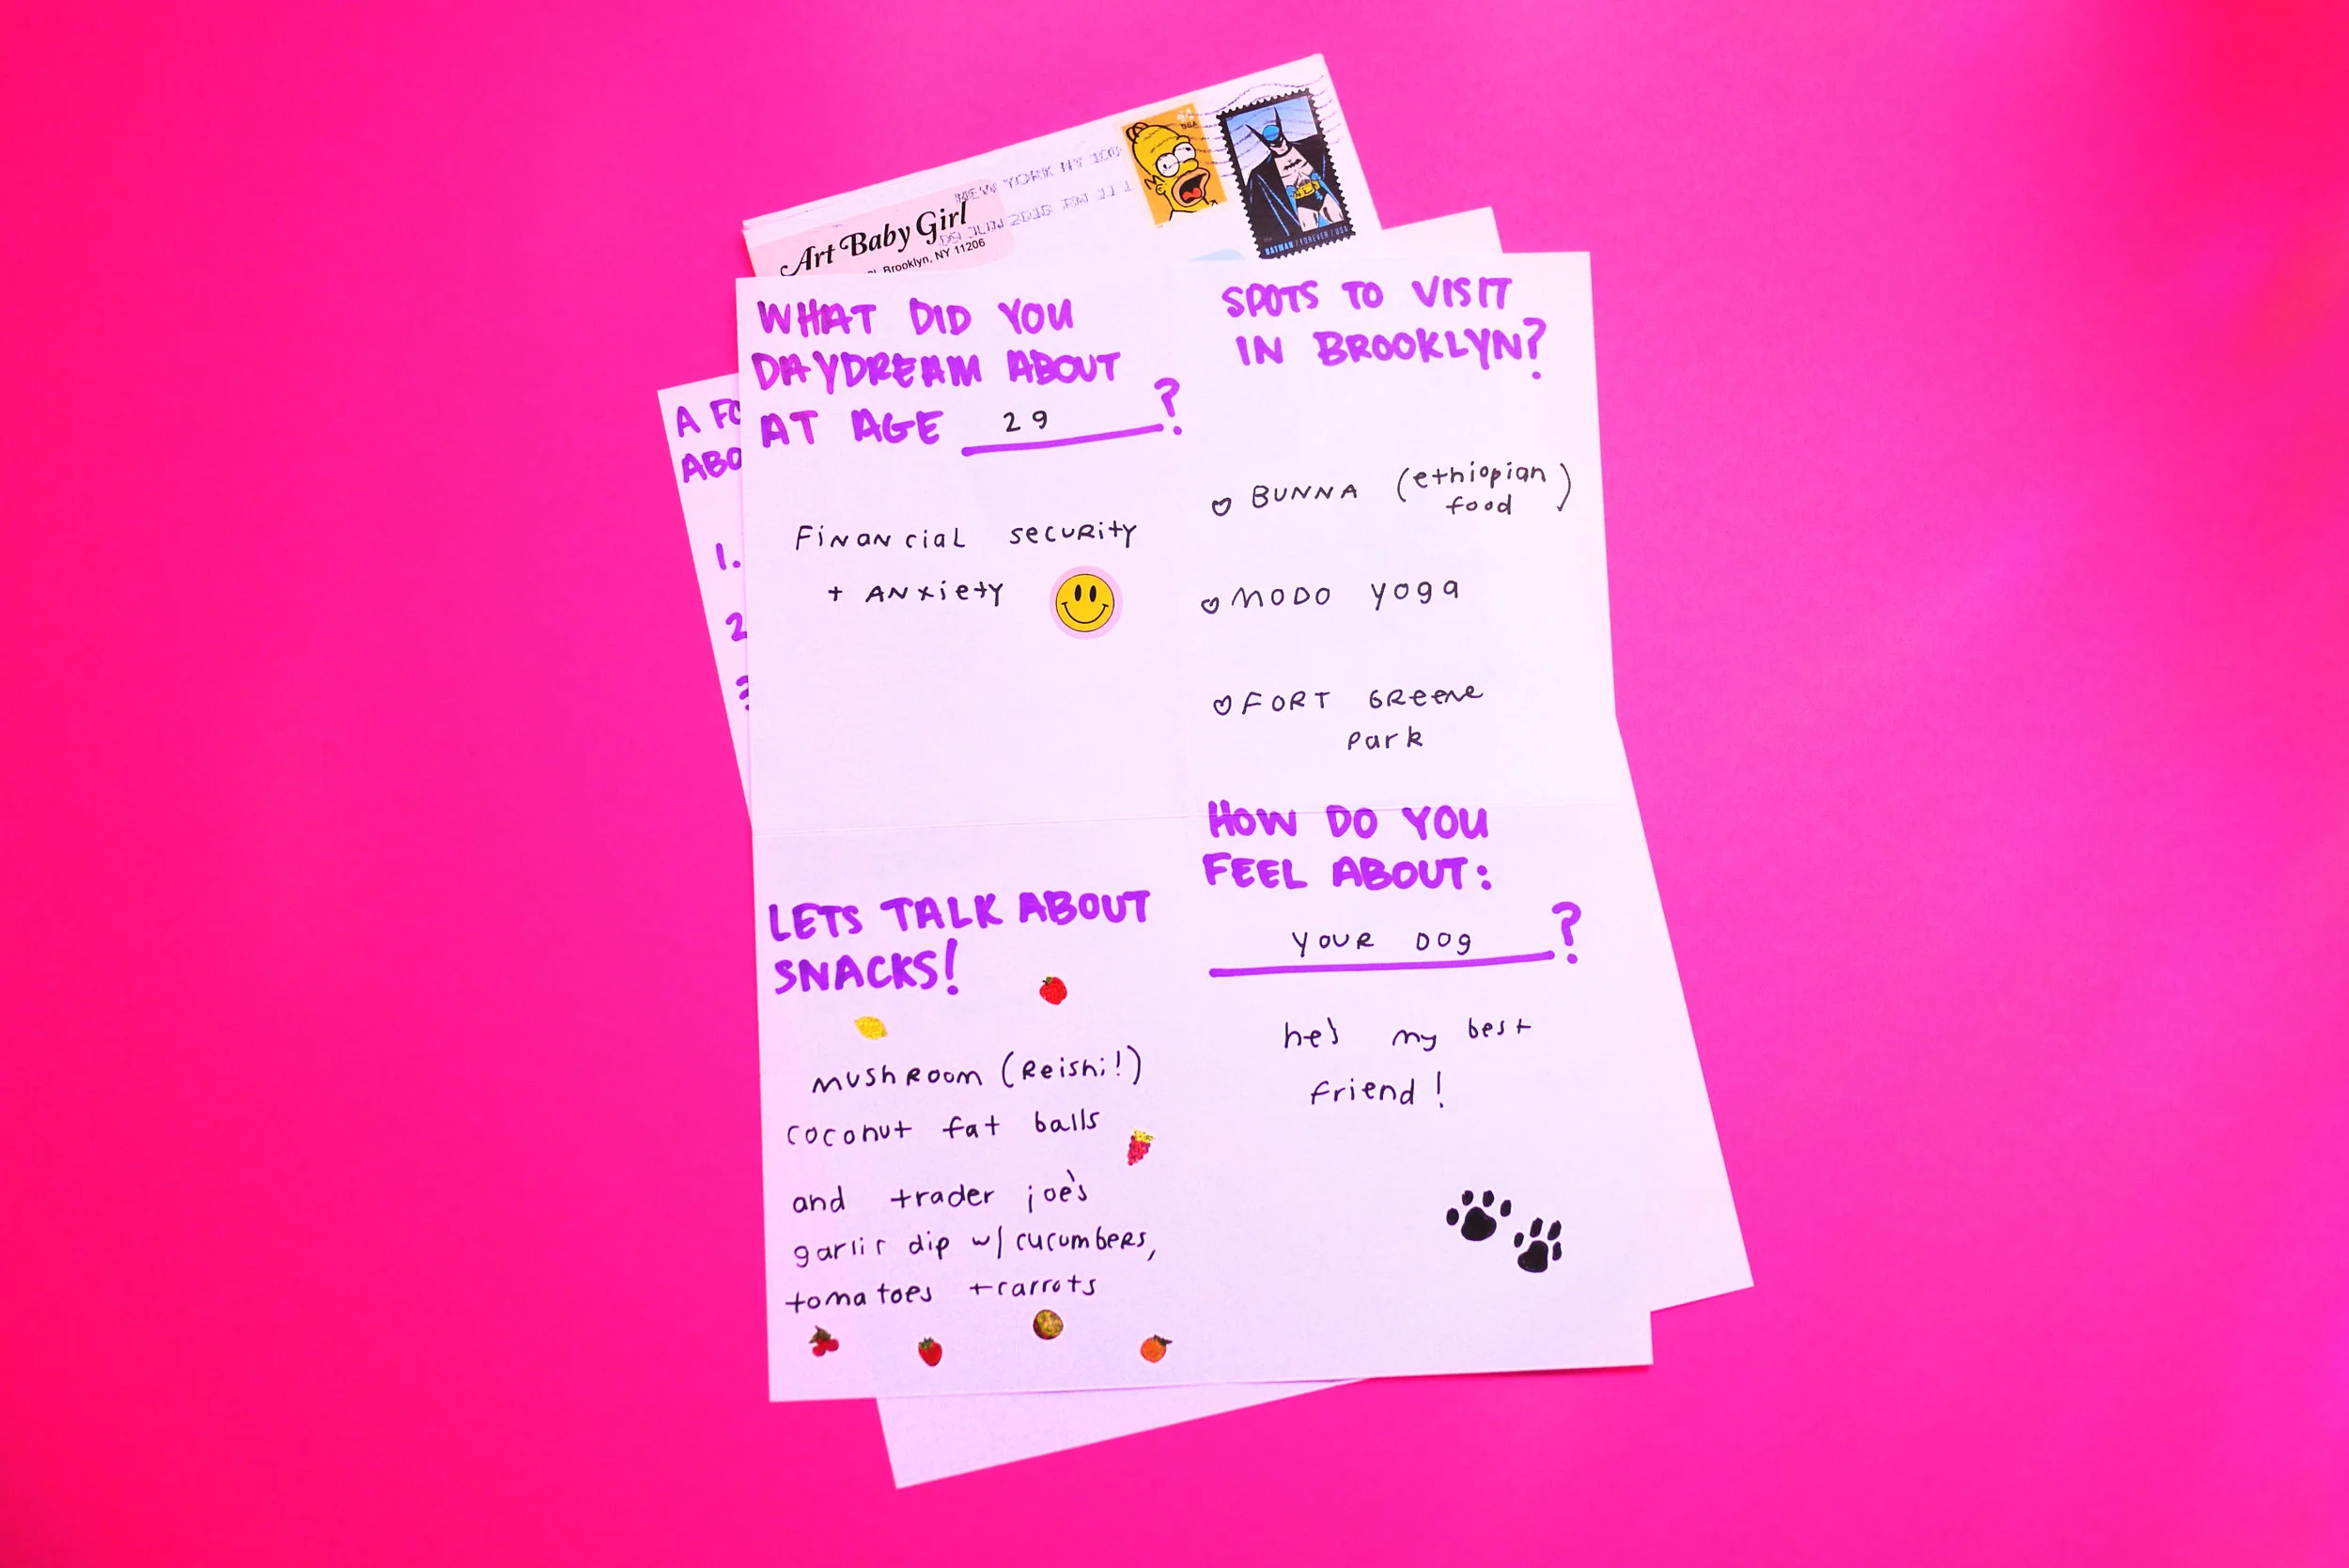 NEW YORK NY 100
09 JUN 2015 PM 11 L
USA
BATMAN / FOREVER / USA
Art Baby Girl
Brooklyn, NY 11206
A FO
ABO
1.
2
3
WHAT DID YOU
DAYDREAM ABOUT
AT AGE 29?
FiNANciaL secuRity
+ ANxiety
SPOTS TO VISIT
IN BROOKLYN?
BUNNA (ethiopian
food)
MODO yoga
FORT GReene
park
LETS TALK ABOUT
SNACKS!
mushRoom (Reishi!)
coconut fat balls
and trader joe's
garlic dip w/ cucumbeRs,
tomatoes + carrots
HOW DO YOU
FEEL ABOUT:
YOUR DOg?
he's my best
friend!